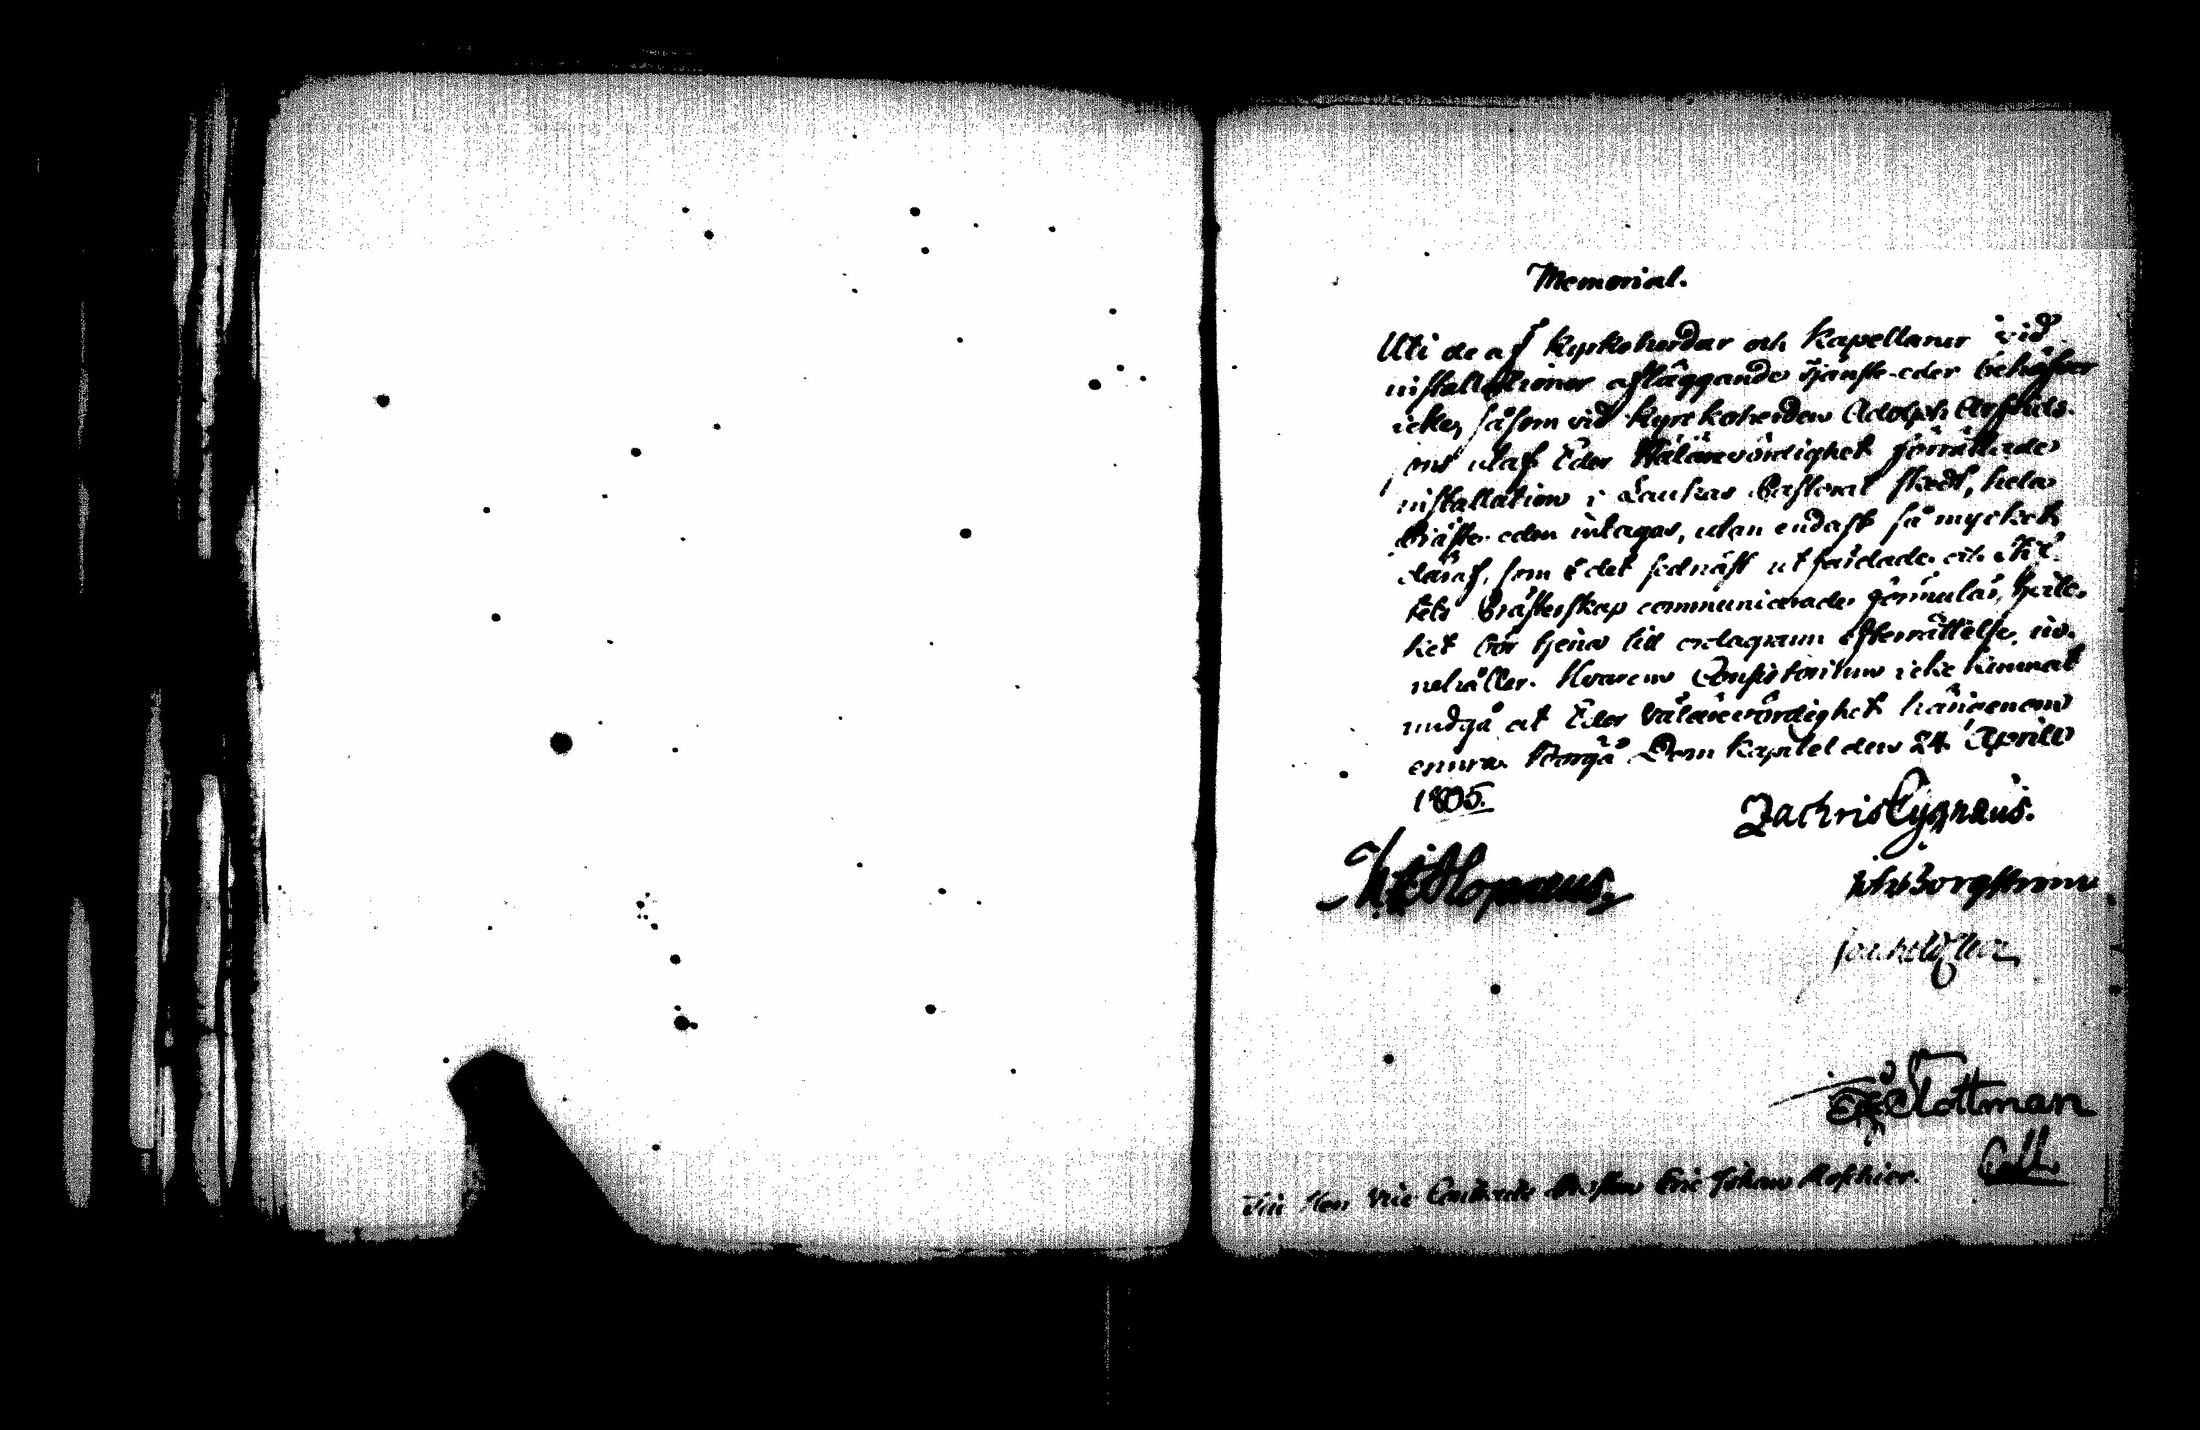 Memorial.
Uti de af Kyrkoherdar och Kapellaner vid
installationer afläggande tjenste-eder behöfver
icke, såsom vid Kyrkoherden Adolph Arfvids-
ons utaf Eder Wälärevördighet förrättade
installation i Laukas Pastorat skedt, hela
Präste-eden intagas, utan endast så mycket
däraf, som det sednast utfärdade och
tets Prästerskap communicerade formulär, hvil-
ket bör tjena till ordagrann efterrättelse, in-
nehåller. Hvarom Consistorium icke kunnat
undgå at Eder Välärevördighet härigenom
erinra. Borgå Dom Kapitel den 24 Aprill
1805.
Zachris Cygnæus.
Alopæus
Borgstrøm
Slottman
Vice Pastorn Eric Johan